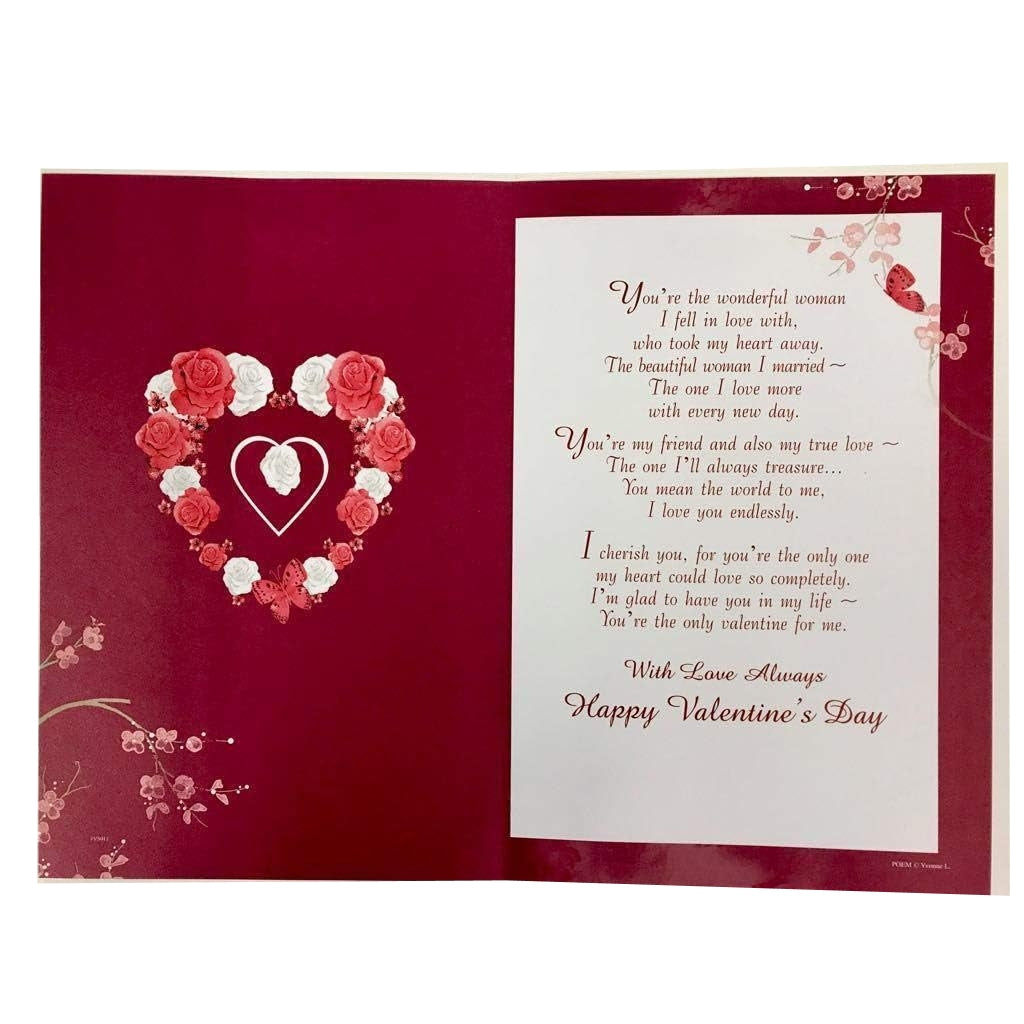 You're the wonderful woman
I fell in love with,
who took my heart away.
The beautiful woman I married ~
The one I love more
with every new day.
You're my friend and also my true love ~
The one I'll always treasure...
You mean the world to me,
I love you endlessly.
I cherish you, for you're the only one
my heart could love so completely.
I'm glad to have you in my life ~
You're the only valentine for me.
With Love Always
Happy Valentine's Day
POEM © Yvonne L.